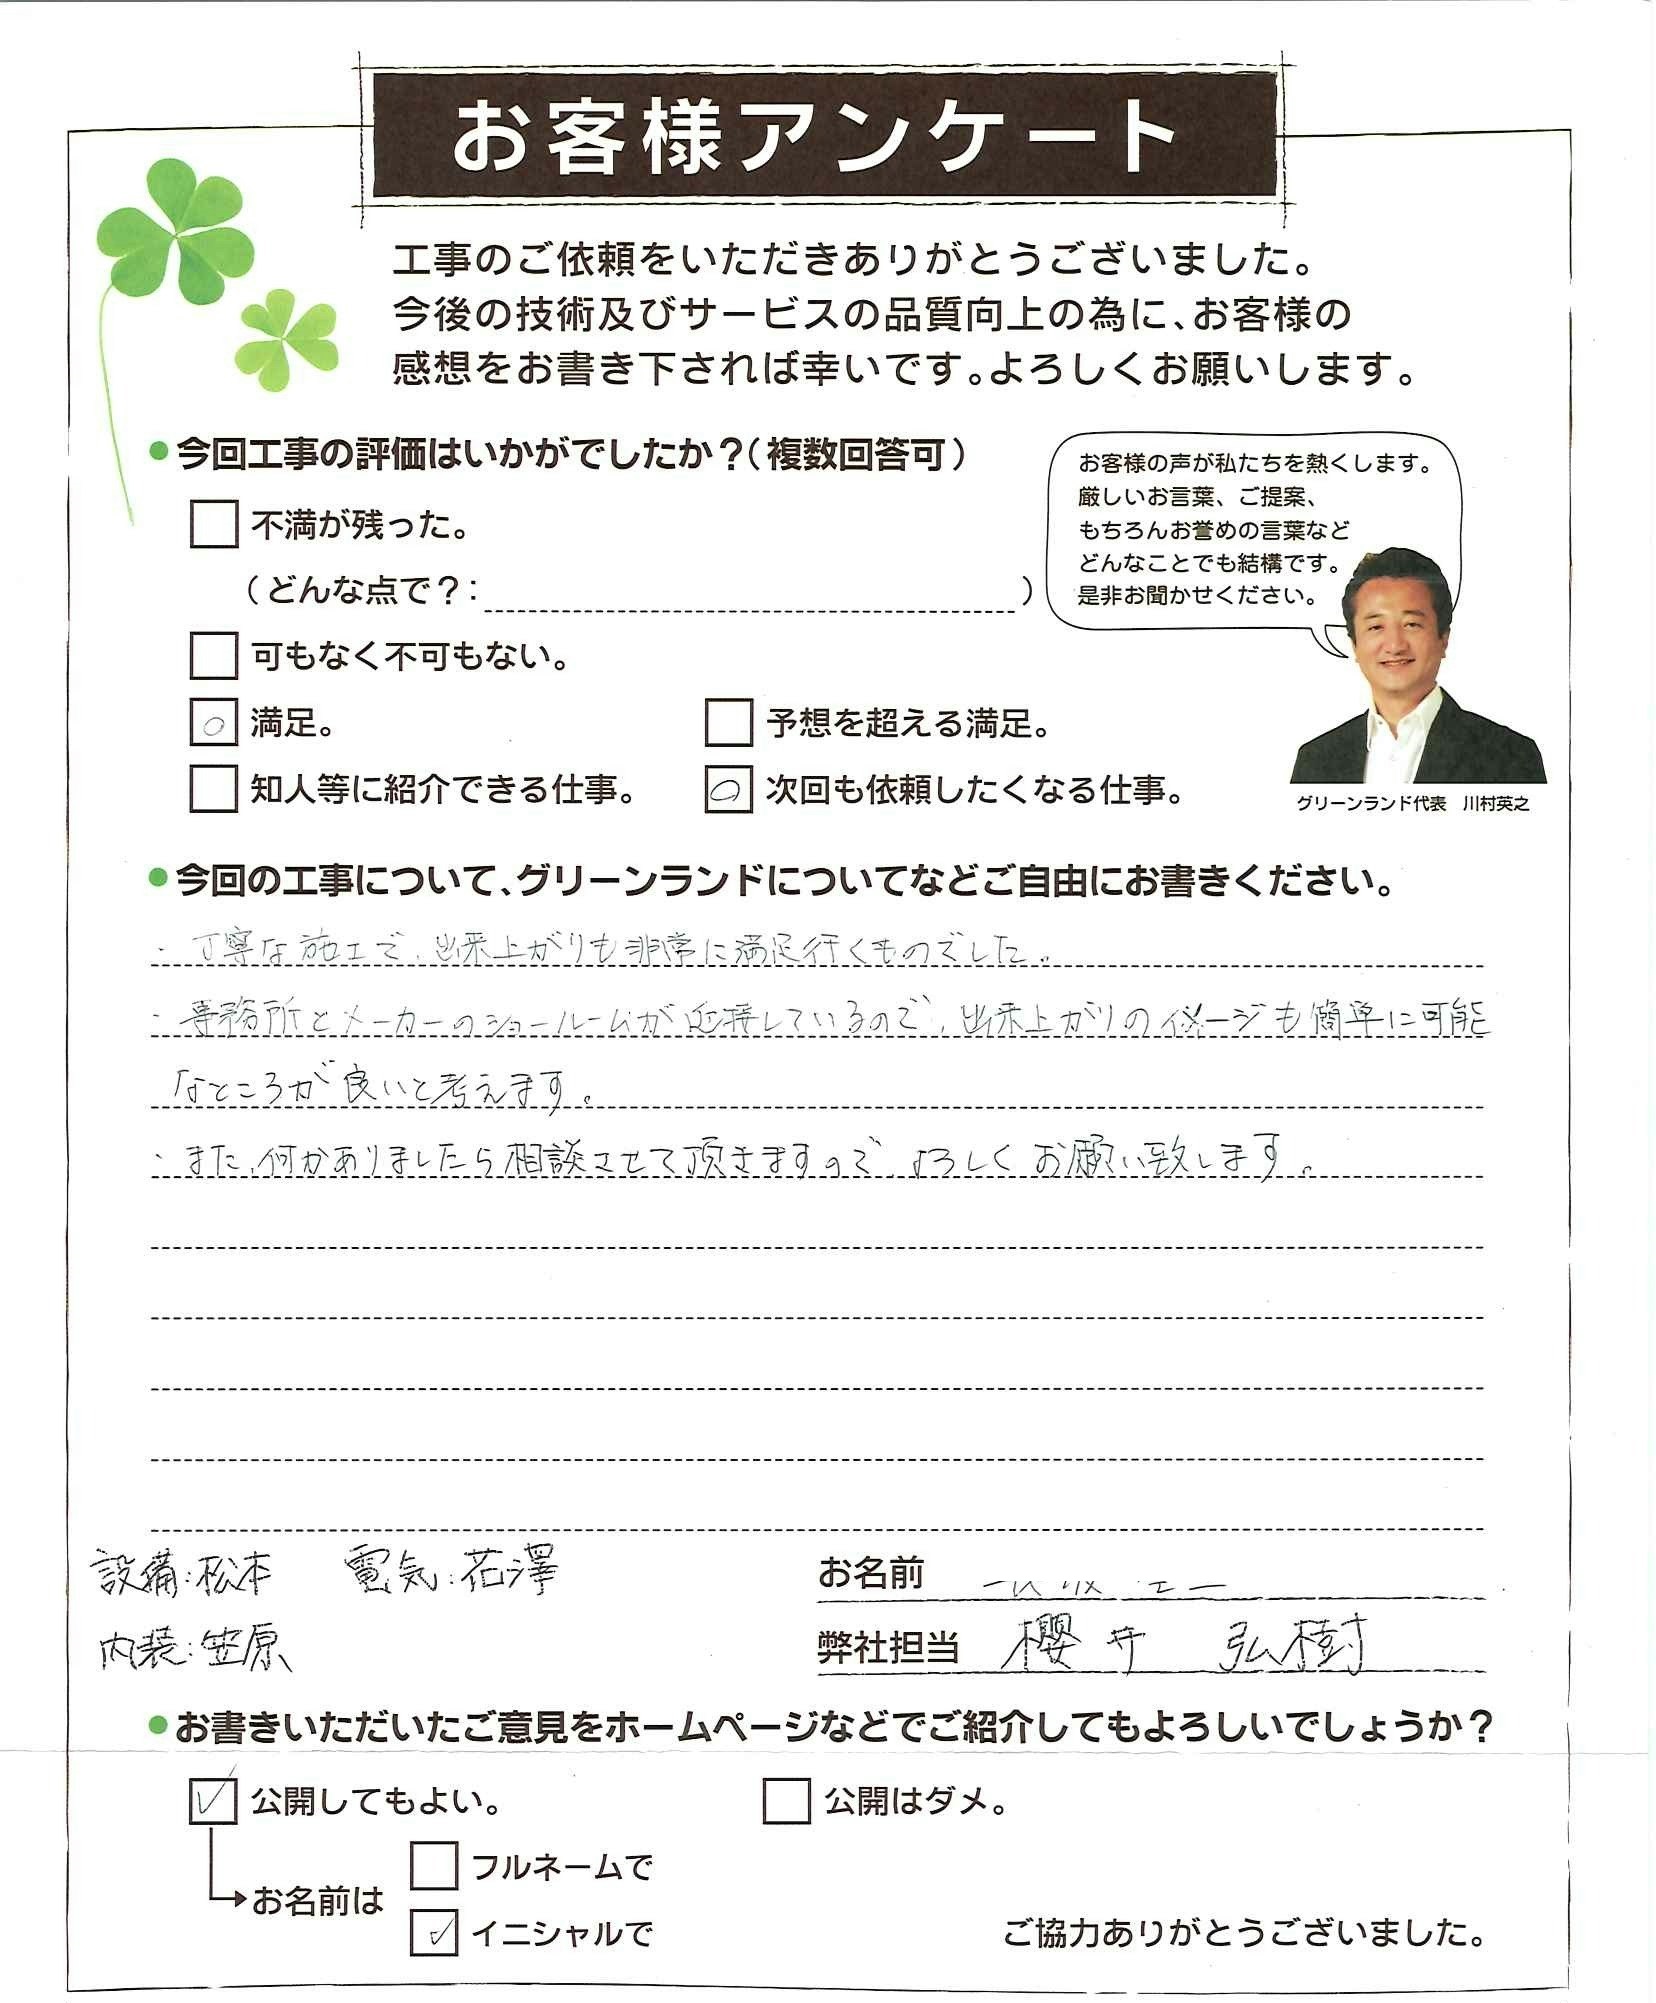 お客様アンケート
工事のご依頼をいただきありがとうございました。
今後の技術及びサービスの品質向上の為に、お客様の
感想をお書き下されれば幸いです。よろしくお願いします。
●今回工事の評価はいかがでしたか？（複数回答可）
お客様の声が私たちを熱くします。
厳しいお言葉、ご提案、
もちろんお誉めの言葉など
どんなことでも結構です。
是非お聞かせください。
不満が残った。
（どんな点で？：　）
可もなく不可もない。
満足。
予想を超える満足。
知人等に紹介できる仕事。
次回も依頼したくなる仕事。
グリーンランド代表　川村英之
●今回の工事について、グリーンランドについてなどご自由にお書きください。
・丁寧な施工で、出来上がりも非常に満足行くものでした。
・事務所とメーカーのショールームが近接しているので、出来上がりのイメージも簡単に可能
なところが良いと考えます。
・また、何かありましたら相談させて頂きますので、よろしくお願い致します。
設備：松本　電気：花澤
内装：笠原
お名前
弊社担当　櫻井　弘樹
●お書きいただいたご意見をホームページなどでご紹介してもよろしいでしょうか？
公開してもよい。
公開はダメ。
お名前は
フルネームで
イニシャルで
ご協力ありがとうございました。